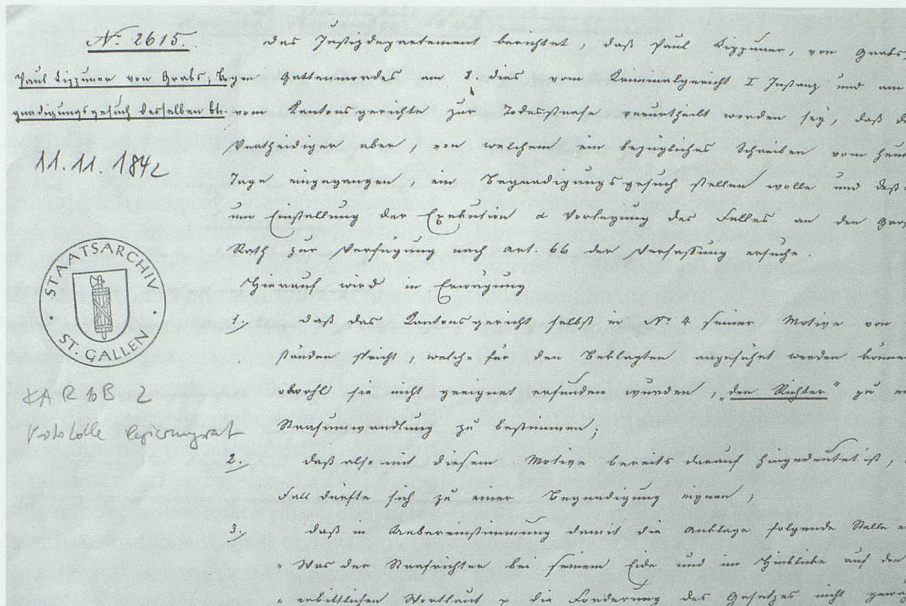 N.º 2615.
Paul Lippuner von Grabs; Be-
gnadigungsgesuch desselben btr.
11.11.1842
STAATSARCHIV
ST. GALLEN
KA R 1B 2
Protokolle Regierungsrat
Das Justizdepartement berichtet, daß Paul Lippuner, von Grabs,
wegen Gattenmordes am 8. dies vom Kriminalgericht I Instanz und am
vom Kantonsgerichte zur Todesstrafe verurtheilt worden sey, daß d
Vertheidiger aber, von welchem ein bezügliches Schreiben vom heut
Tage eingegangen, ein Begnadigungsgesuch stellen wolle und deß
um Einstellung der Exekution & Vorlegung des Falles an den Gro
Rath zur Verfügung nach Art. 66 der Verfassung ersuche.
Hierauf wird in Erwägung
1., daß das Kantonsgericht selbst in Nº 4 seiner Motive von
ständen spricht, welche für den Beklagten angeführt werden könne
obwohl sie nicht geeignet erfunden wurden, „den Richter" zu e
Strafumwandlung zu bestimmen;
2., daß also mit diesem Motive bereits darauf hingedeutet ist,
Fall dürfte sich zu einer Begnadigung eignen;
3., daß in Uebereinstimmung damit die Anklage folgende Stelle e
„ Was der Strafrichter bei seinem Eide und im Hinblicke auf den
„ erbittlichen Wortlaut die Forderung des Gesetzes nicht